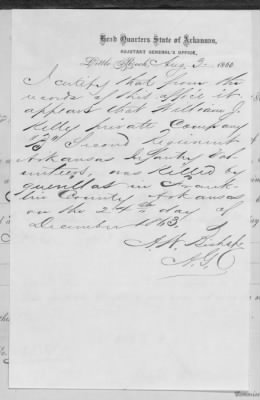 Head Quarters State of Arkansas,
ADJUTANT GENERAL'S OFFICE,
Little Rock, Aug 2 1860
I certify that from the
records of this office it
appears that William J.
Kelly private Company
Second Regiment
Arkansas Infantry Vol
unteers, was killed by
guerillas in Frank
lin County Arkansas
on the 24th day of
December 1863.
A. W. Bishop
A. G.